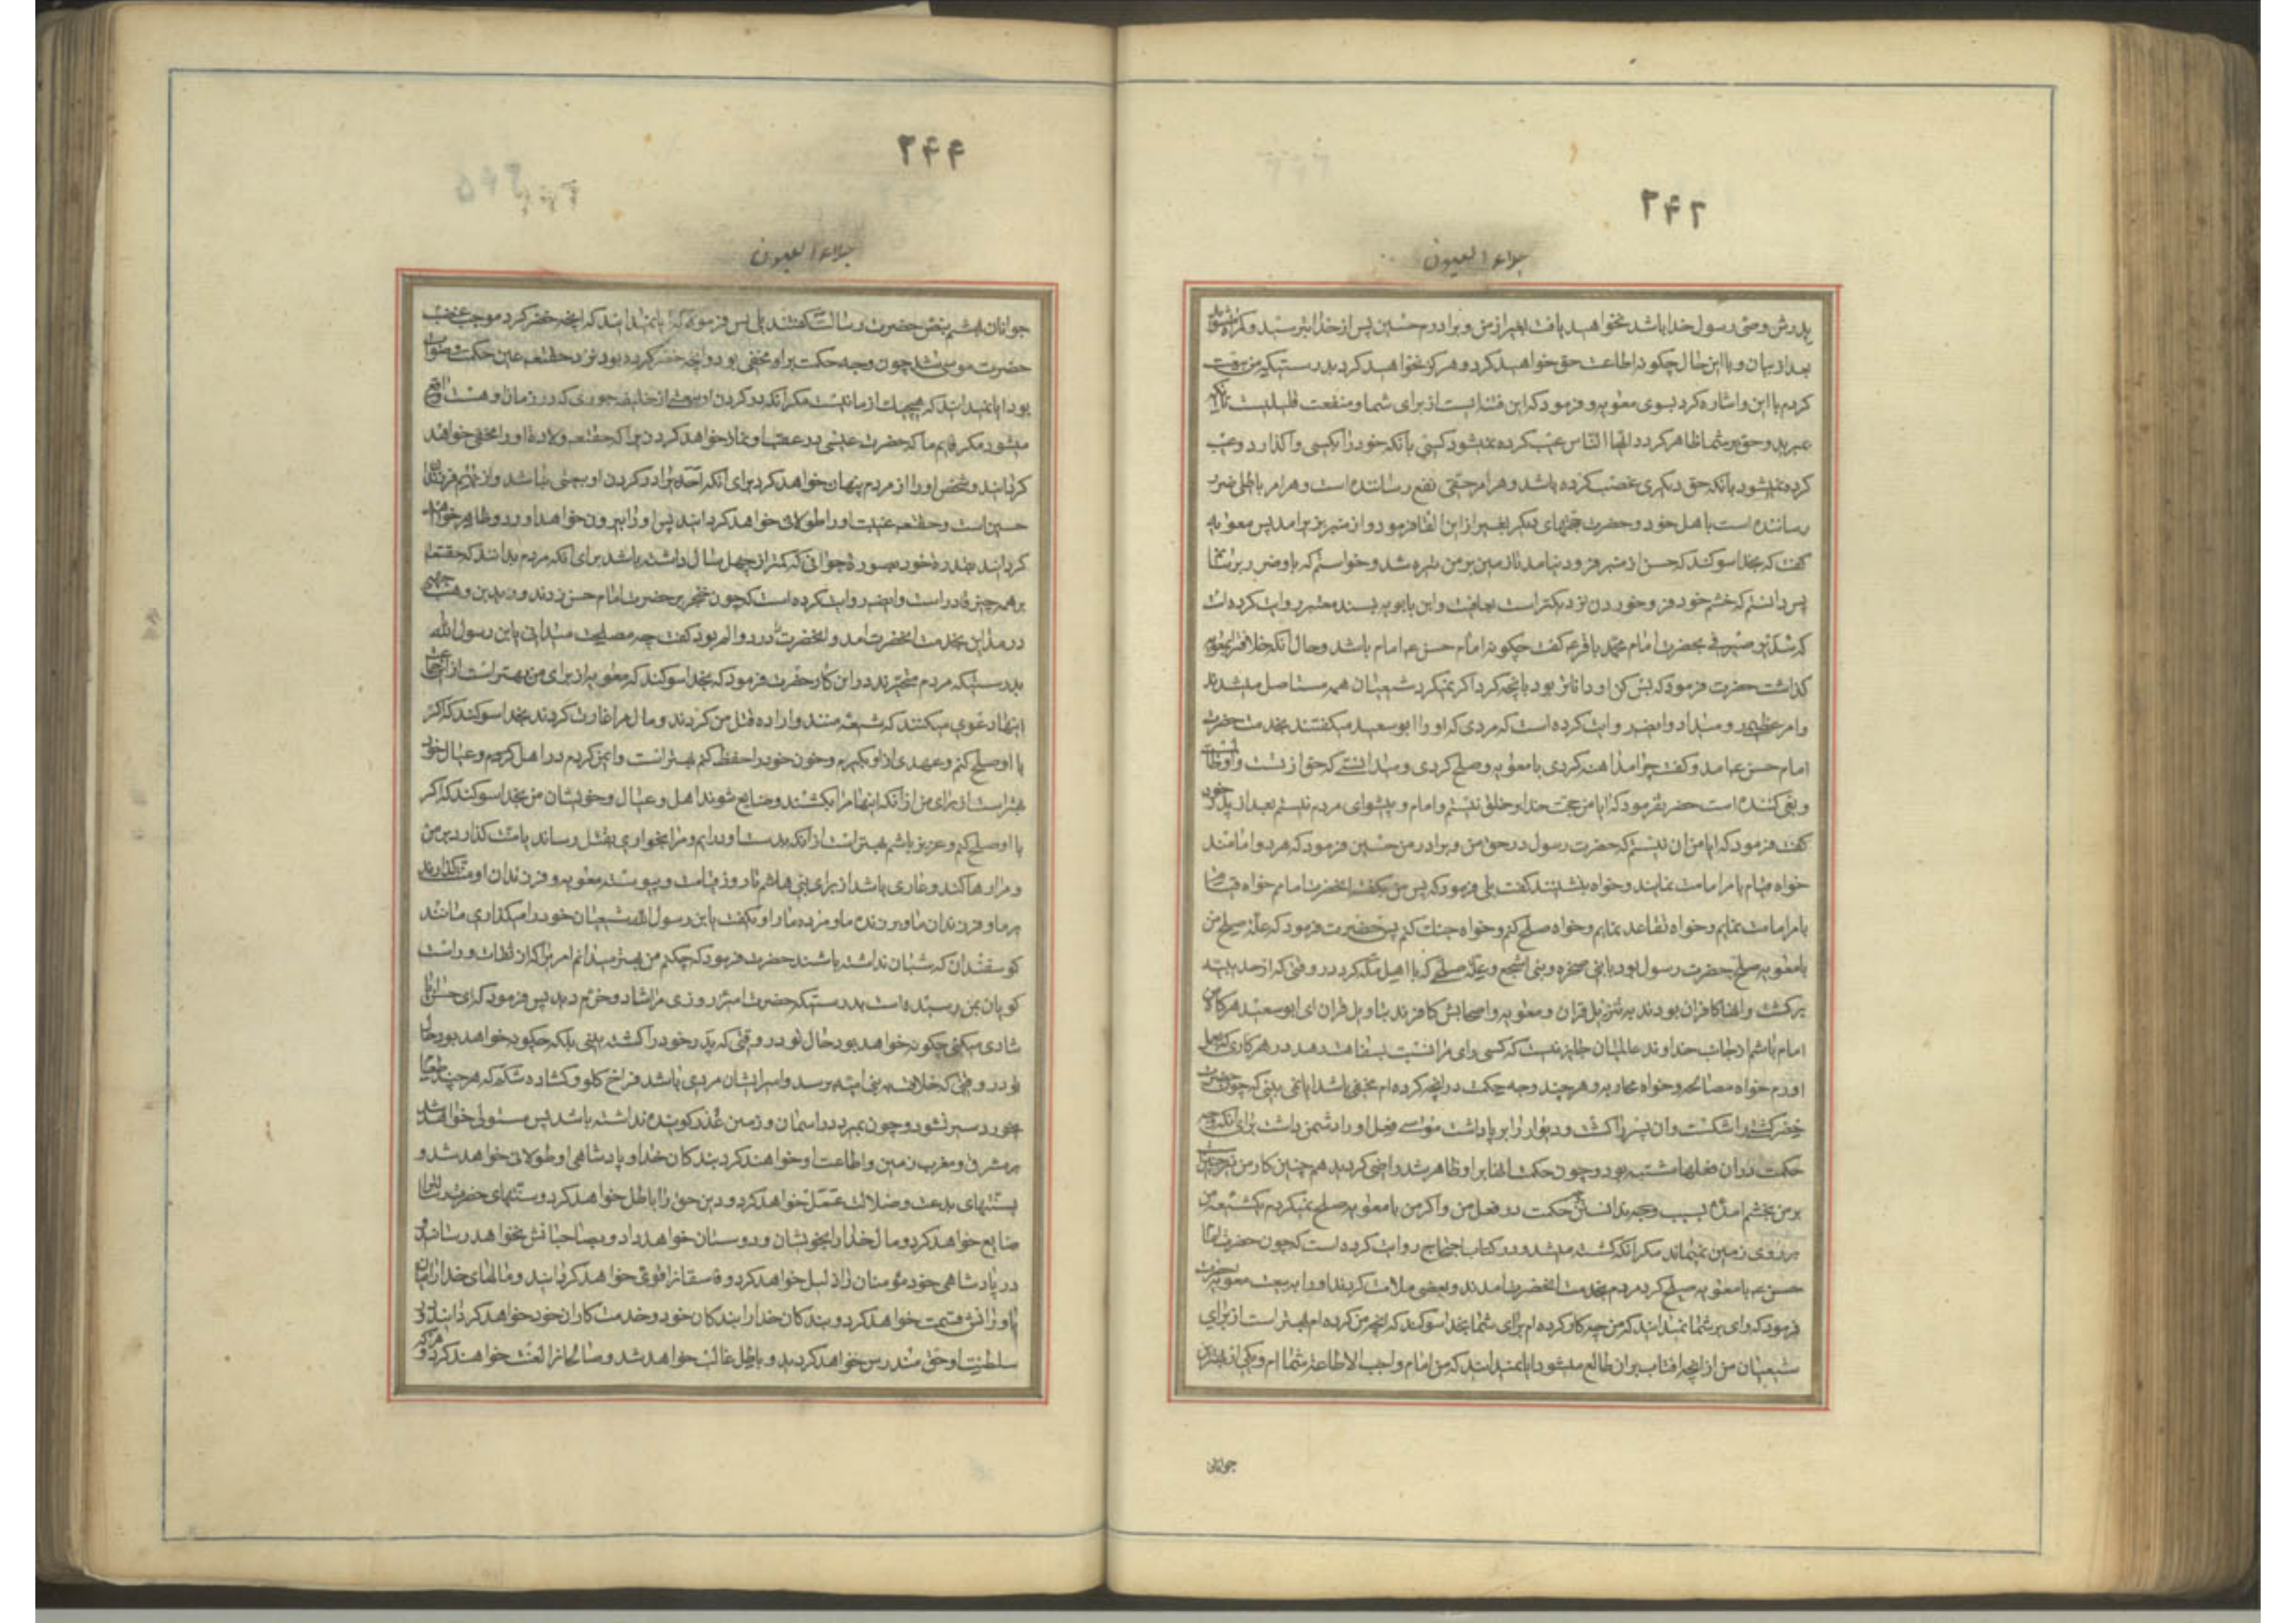 ۲۴۲
جلاء العیون
پدرش وصی رسول خدا باشد نخواهید یافت بغیر از من و برادرم حسین پس از خدا بترسید و گمراه نشوید
بعد از بیان و با این حال چکونه اطاعت حق خواهید کرد و هرکز نخواهید کرد بدرستیکه من بیعت
کردم با این و اشاره کرد بسوی معویه و فرمود که این فتنه ایست از برای شما و منفعت قلیلیست
عیب کرده نمیشود کسی بانکه خود را بکسی واکذارد و عیب
کرده نمیشود بانکه حق دیکری غصب کرده باشد و هر امر حقی نفع رساننده است و هر امر باطلی ضرر
رساننده است باهل خود و حضرت سخنهای دیکر بغیر از این الفاظ فرمود و از منبر بزیر امد پس معویه
کفت که بخدا سوکند که حسن از منبر فرود نیامد تا زمین بر من تیره شد و خواستم که باو ضرر برسانم
پس دانستم که خشم خود فرو خوردن نزدیکتر است بعافیت و ابن بابویه بسند معتبر روایت کرده است
که سدیر صیرفی بحضرت امام محمد باقر ع کفت چکونه امام حسن ع امام باشد و حال انکه خلافترا بمعویه
کذاشت حضرت فرمود که بس کن او داناتر بود بانچه کرد اکر نمیکرد شیعیان همه مستاصل میشدند
و امر عظیمی رو میداد و ایضا روایت کرده است که مردی که او را ابو سعید میکفتند بخدمت حضرت
امام حسن ع امد و کفت چرا مداهنه کردی با معویه و صلح کردی و میدانستی که حق از تست و او ظالم
و بغی کننده است حضرت فرمود که ایا من حجت خدا بر خلق نیستم و امام و پیشوای مردم نیستم بعد از پدر خود
کفت فرمود که ایا من ان نیستم که حضرت رسول در حق من و برادر من حسین فرمود که هر دو امامند
خواه قیام بامر امامت نمایند و خواه بنشینند کفت بلی فرمود که پس من بکفته انحضرت امامم خواه قیام
بامر امامت نمایم و خواه تقاعد نمایم و خواه صلح کنم و خواه جنک کنم پس حضرت فرمود که علت صلح من
با معویه صلح حضرت رسول بود با بنی ضمره و بنی اشجع و علت صلحی که با اهل مکه کرد در وقتی که از حدیبیه
برکشت و انها کافران بودند به تنزیل قران و معویه و اصحابش کافرند بتاویل قران ای ابو سعید هرکاه من
امام باشم از جانب خداوند عالمیان جایز نیست که کسی رای مرا نسبت بسفاهت دهد در هر کاری که بعمل
اورم خواه مصالحه و خواه محاربه و هرچند وجه حکمت در انچه کرده ام مخفی باشد ایا نمی بینی که چون حضرت
خضر کشتی را شکست و ان پسر را کشت و دیوار را برپا داشت موسی فعل او را دشمن داشت برای انکه وجه
حکمت در ان فعلها مشتبه بود و چون حکمت انها بر او ظاهر شد راضی کردید همچنین کار من
بر من بخشم امده اید بسبب ندانستن وجه حکمت در فعل من و اکر من با معویه صلح نمیکردم یک شیعه من
بر روی زمین نمیماند مکر انکه کشته میشد و در کتاب احتجاج روایت کرده است که چون حضرت امام
حسن ع با معویه صلح کرد مردم بخدمت انحضرت امدند و بعضی ملامت کردند او را به بیعت معویه حضرت
فرمود که وای بر شما نمیدانید که من چه کار کرده ام برای شما بخدا سوکند که انچه من کرده ام بهتر است از برای
شیعیان من از انچه افتاب بر ان طالع میشود ایا نمیدانید که من امام واجب الاطاعه شما ام و یکی از بهترین
جوانان
۲۴۴
جلاء العیون
جوانان بهشتم بنص حضرت رسالت کفتند بلی پس فرمود که ایا نمیدانید که انچه خضر کرد موجب غضب
حضرت موسی شد چون وجه حکمت بر او مخفی بود و انچه خضر کرده بود نزد حقتعالی عین حکمت و صواب
بود ایا نمیدانید که هیچیک از ما نیست مکر انکه در کردن او بیعتی از خلیفه جوری که در زمان اوهست واقع
میشود مکر قایم ما که حضرت عیسی در عقب او نماز خواهد کرد زیرا که حقتعالی ولادت او را مخفی خواهد
کردانید و شخص او را از مردم پنهان خواهد کرد برای انکه احدی را در کردن او بیعتی نباشد و او نهم فرزندان
حسین است و حقتعالی غیبت او را طولانی خواهد کردانید پس او را بیرون خواهد اورد و ظاهر خواهد
کردانید بقدرت خود بصورت جوانی که کمتر از چهل سال داشته باشد برای انکه مردم بدانند که حقتعالی
بر همه چیز قادر است و ایضا روایت کرده است که چون خنجر بر حضرت امام حسن زدند در مدین زید بن وهب جهنی
در مداین بخدمت انحضرت امد و انحضرت در درد و الم بود کفت چه مصلحت میدانی یابن رسول الله
بدرستیکه مردم متحیرند در این کار حضرت فرمود که بخدا سوکند که معویه از برای من بهتر است از این جماعت
اینها دعوی میکنند که شیعه منند و اراده قتل من کردند و مال مرا غارت کردند بخدا سوکند که اکر
با او صلح کنم و عهدی از او بکیرم و خون خود را حفظ کنم بهتر است و ایمن کردم در اهل و عیال خود
بهتر است از برای من از انکه اینها مرا بکشند و ضایع شوند اهل و عیال و خویشان من بخدا سوکند که اکر
با او صلح کنم و عزیز باشم بهتر است از انکه بدست او درایم و مرا بخواری بقتل رساند یا منت کذارد بر من
و مرا رها کند و عاری باشد از برای بنی هاشم تا روز قیامت و پیوسته معویه و فرزندان او منت کذارند
بر ما و فرزندان ما و بر زنده ما و مرده ما راوی کفت یابن رسول الله شیعیان خود را میکذاری مانند
کوسفندان که شبان نداشته باشند حضرت فرمود که چکنم من بهتر میدانم امریرا که از ثقات و راست
کویان بمن رسیده است بدرستیکه حضرت امیر روزی مرا شاد و خرم دید پس فرمود که ای حسن ایا
شادی میکنی چکونه خواهد بود حال تو در وقتی که پدر خود را کشته بینی بلکه چکونه خواهد بود حال
تو در وقتی که خلافت به بنی امیه برسد و امیر ایشان مردی باشد فراخ کلو و کشاده شکم که هرچند طعام
خورد سیر نشود و چون بمیرد در اسمان و زمین عذر کوینده نداشته باشد پس مستولی خواهد شد
بر مشرق و مغرب زمین و اطاعت او خواهند کرد بندکان خدا و پادشاهی او طولانی خواهد شد و
بسنتهای بدعت و ضلالت عمل خواهد کرد و دین حق را باطل خواهد کرد و سنتهای حضرت رسالت را
ضایع خواهد کرد و مال خدا را بخویشان و دوستان خواهد داد و بصاحبانش نخواهد رسانید و
در پادشاهی خود مؤمنان را ذلیل خواهد کرد و فاسقانرا قوی خواهد کردانید و مالهای خدا را میان
یاورانش قسمت خواهد کرد و بندکان خدا را بندکان خود و خدمتکاران خود خواهد کردانید و در
سلطنت او حق مندرس خواهد کردید و باطل غالب خواهد شد و صالحانرا لعنت خواهند کرد و هرکه